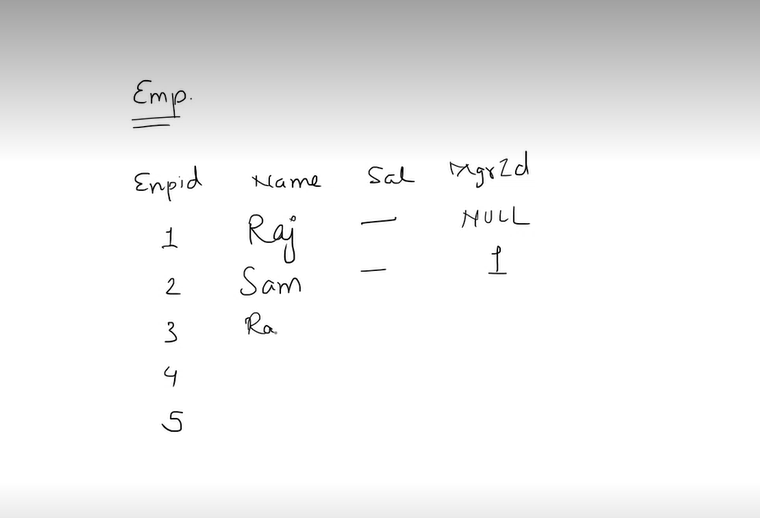 Emp.
Empid Name Sal MgrId
1 Raj — NULL
2 Sam — 1
3 Ra
4
5